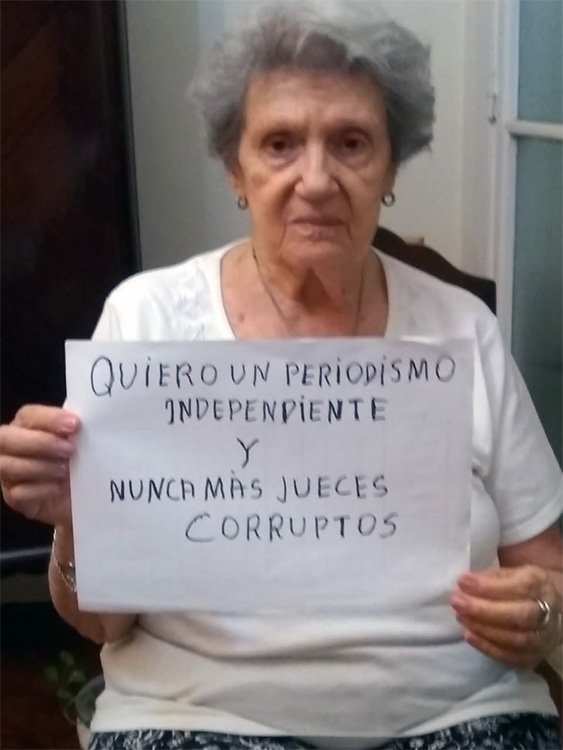 QUIERO UN PERIODISMO
INDEPENDIENTE
Y
NUNCA MÀS JUECES
CORRUPTOS